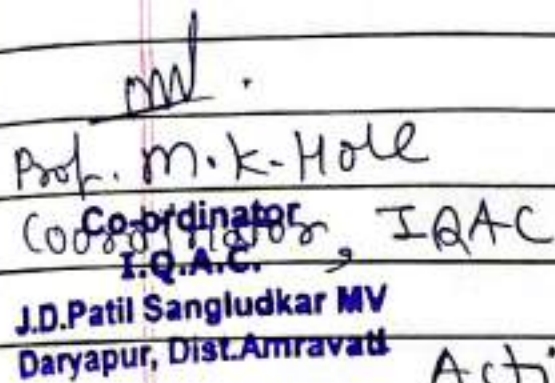 Prof. M.K. Hole
Coordinator, IQAC
Co-ordinator
I.Q.A.C.
J.D.Patil Sangludkar MV
Daryapur, Dist.Amravati
Acti